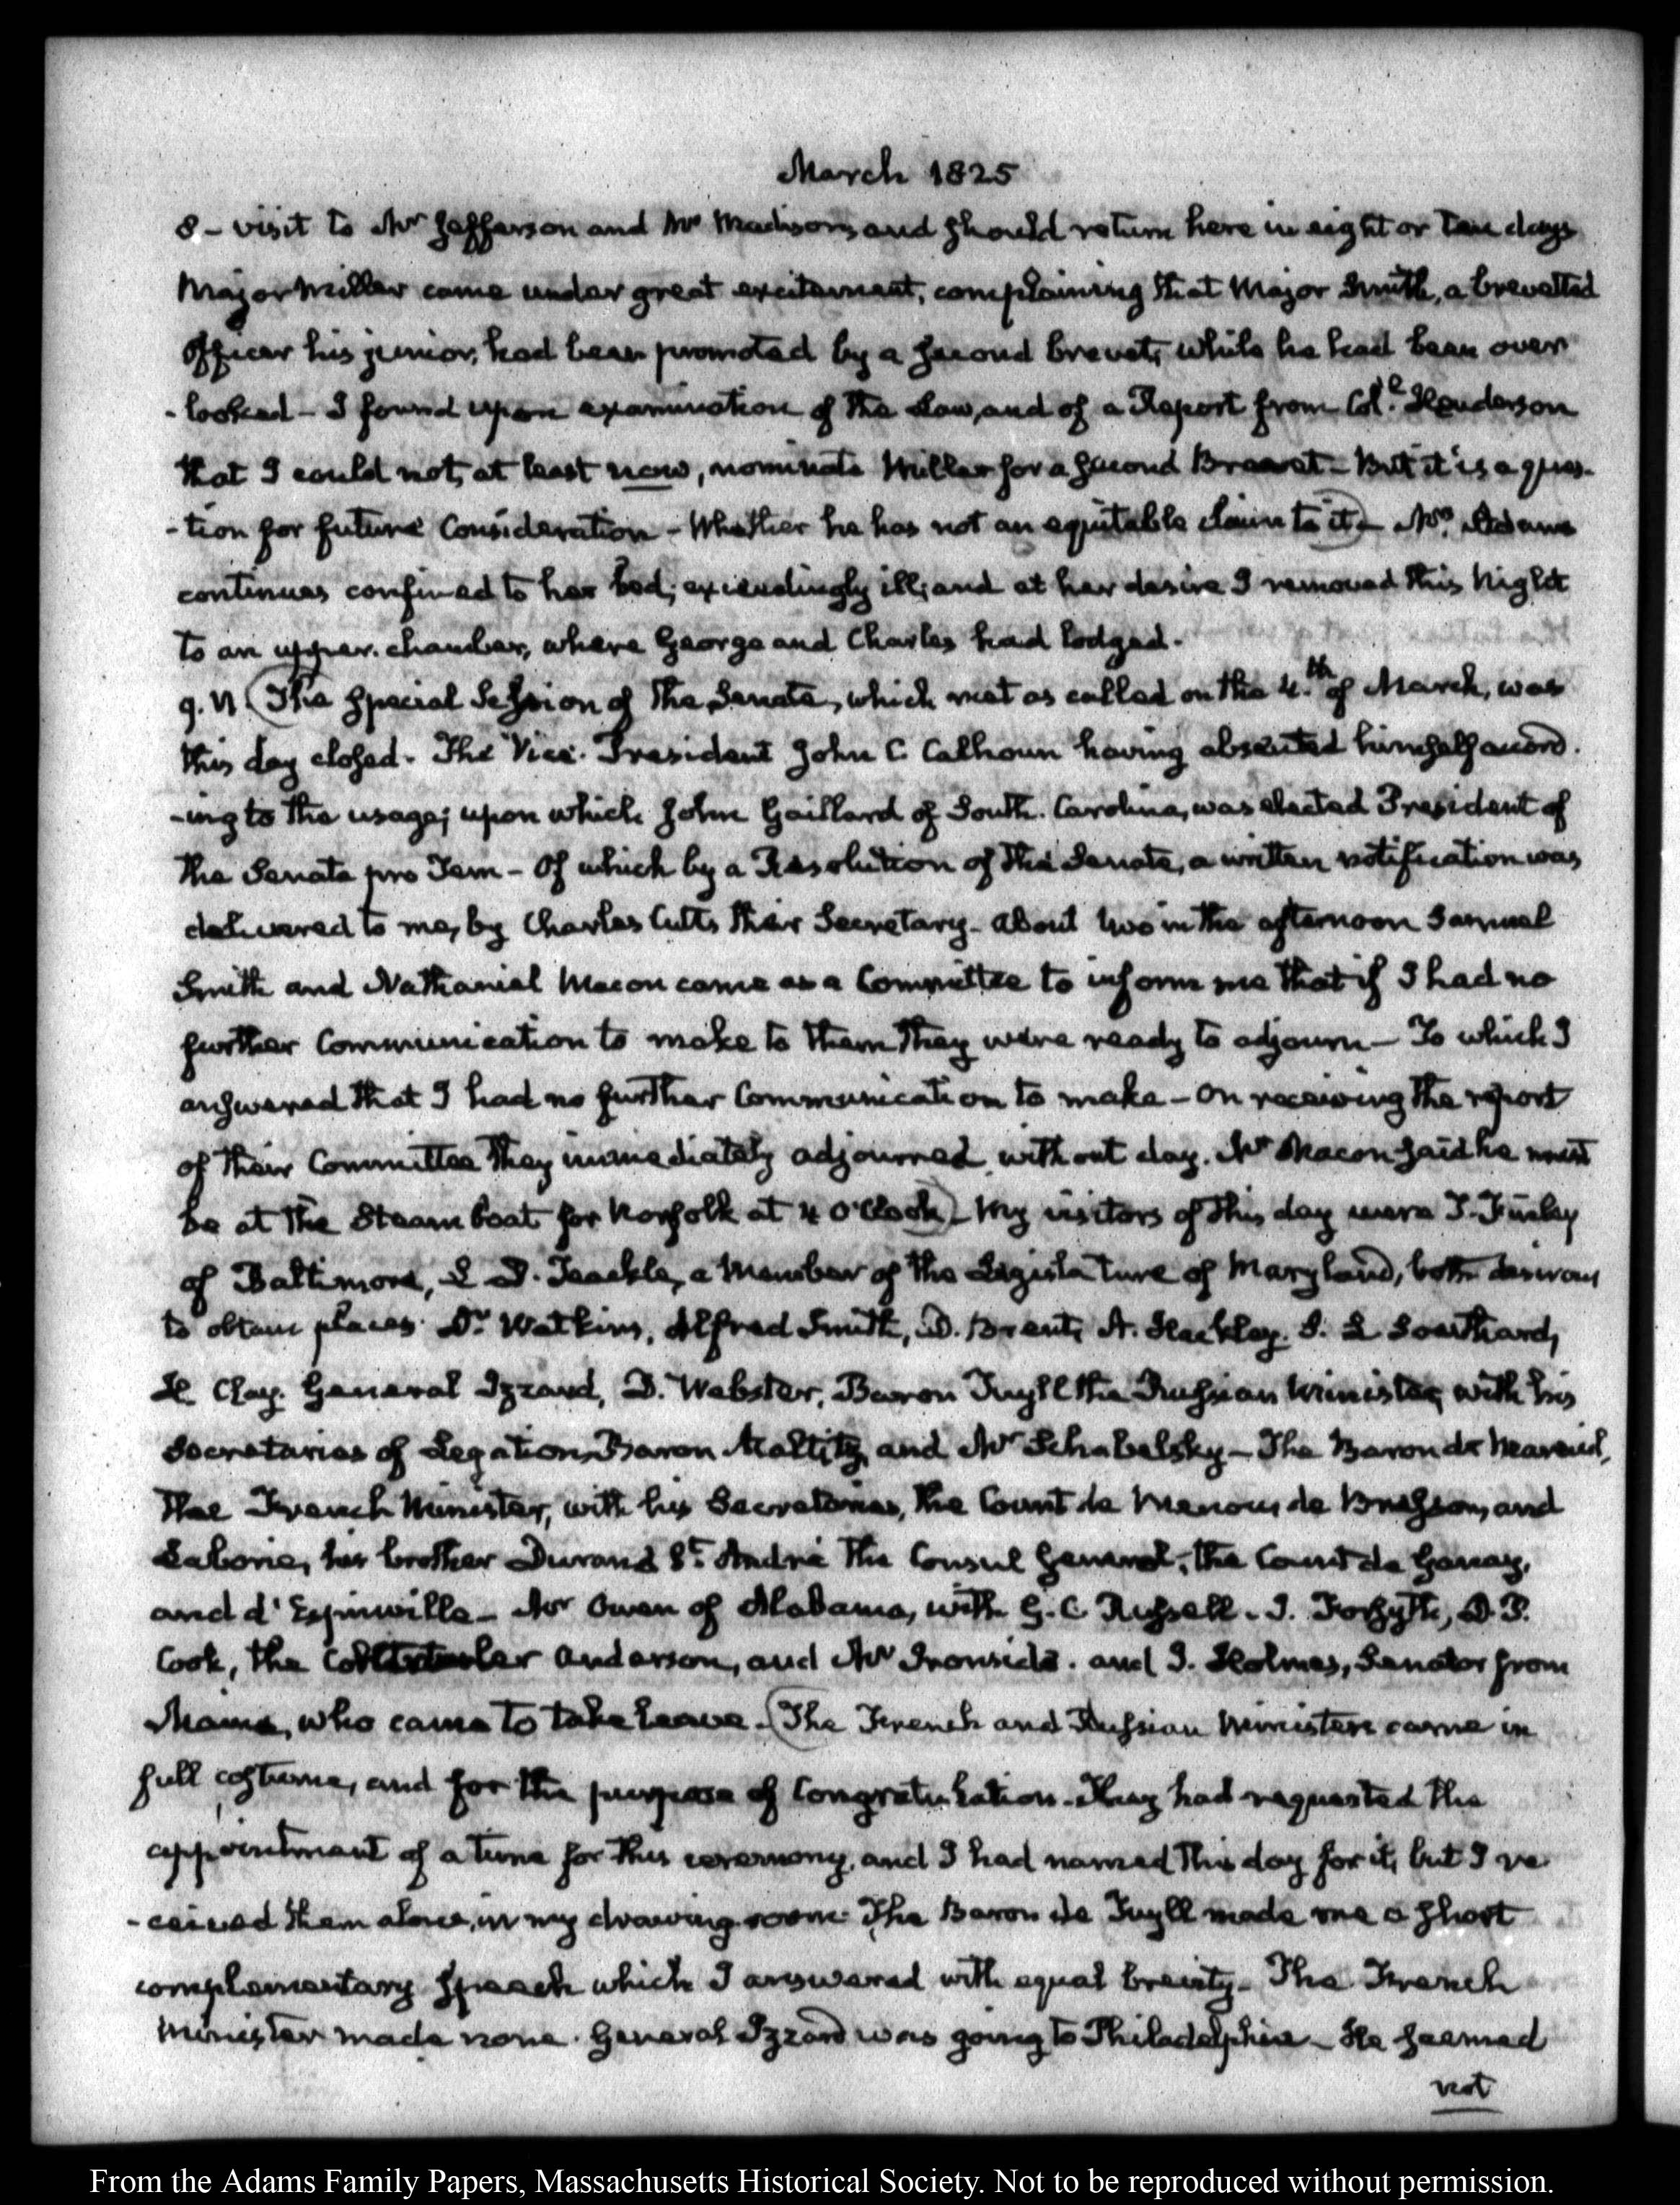 March 1825
8 - visit to Mr Jefferson and Mr Madison, and should return here in eight or ten days
Major Miller came under great excitement, complaining that Major Smith, a brevetted
Officer his junior, had been promoted by a second brevet, while he had been over
- looked - I found upon examination of the Law, and of a Report from Coll. Henderson
that I could not, at least now, nominate Miller for a second Brevet - But it is a ques-
- tion for future Consideration - Whether he has not an equitable claim to it) - Mrs. Adams
continues confined to her bed; exceedingly ill; and at her desire I removed this Night
to an upper chamber, where George and Charles had lodged.
9. VI (The special Session of the Senate, which met as called on the 4.th of March, was
this day closed - The Vice-President John C. Calhoun having absented himself accord.
-ing to the usage; upon which John Gaillard of South-Carolina, was elected President of
the Senate pro Tem - Of which by a Resolution of the Senate, a written notification was
delivered to me, by Charles Cutts their Secretary - about two in the afternoon Samuel
Smith and Nathaniel Macon came as a Committee to inform me that if I had no
further Communication to make to them they were ready to adjourn - To which I
answered that I had no further Communication to make - On receiving the report
of their Committee they immediately adjourned without day. Mr Macon said he must
be at the Steam boat for Norfolk at 4 O'Clock) - My visitors of this day were J. Finley
of Baltimore, L D. Teackle, a Member of the Legislature of Maryland, both desirous
to obtain places. Dr. Watkins, Alfred Smith, D. Brent, A. Hackley. S. L Southard,
H. Clay. General Izzard, D. Webster, Baron Tuyll the Russian Minister, with his
Secretaries of Legation, Baron Maltitz, and Mr Schabelsky - The Baron de Mareuil,
The French Minister, with his Secretaries, the Count de Menou, de Bresson, and
Laborie, his brother Durand St. André the Consul General, the Count de Ganay,
and d'Espinville - Mr Owen of Alabama, with G. C. Russell. J. Forsyth, D. P.
Cook, the Anderson, and Mr Ironside. and J. Holmes, Senator from
Maine, who came to take leave - (The French and Russian Ministers came in
full costume, and for the purpose of Congratulation - They had requested the
appointment of a time for this ceremony, and I had named this day for it, but I re
- ceived them alone, in my drawing-room. The Baron de Tuyll made me a short
complementary speech which I answered with equal brevity - The French
Minister made none. General Izzard was going to Philadelphia - He seemed
not
From the Adams Family Papers, Massachusetts Historical Society. Not to be reproduced without permission.